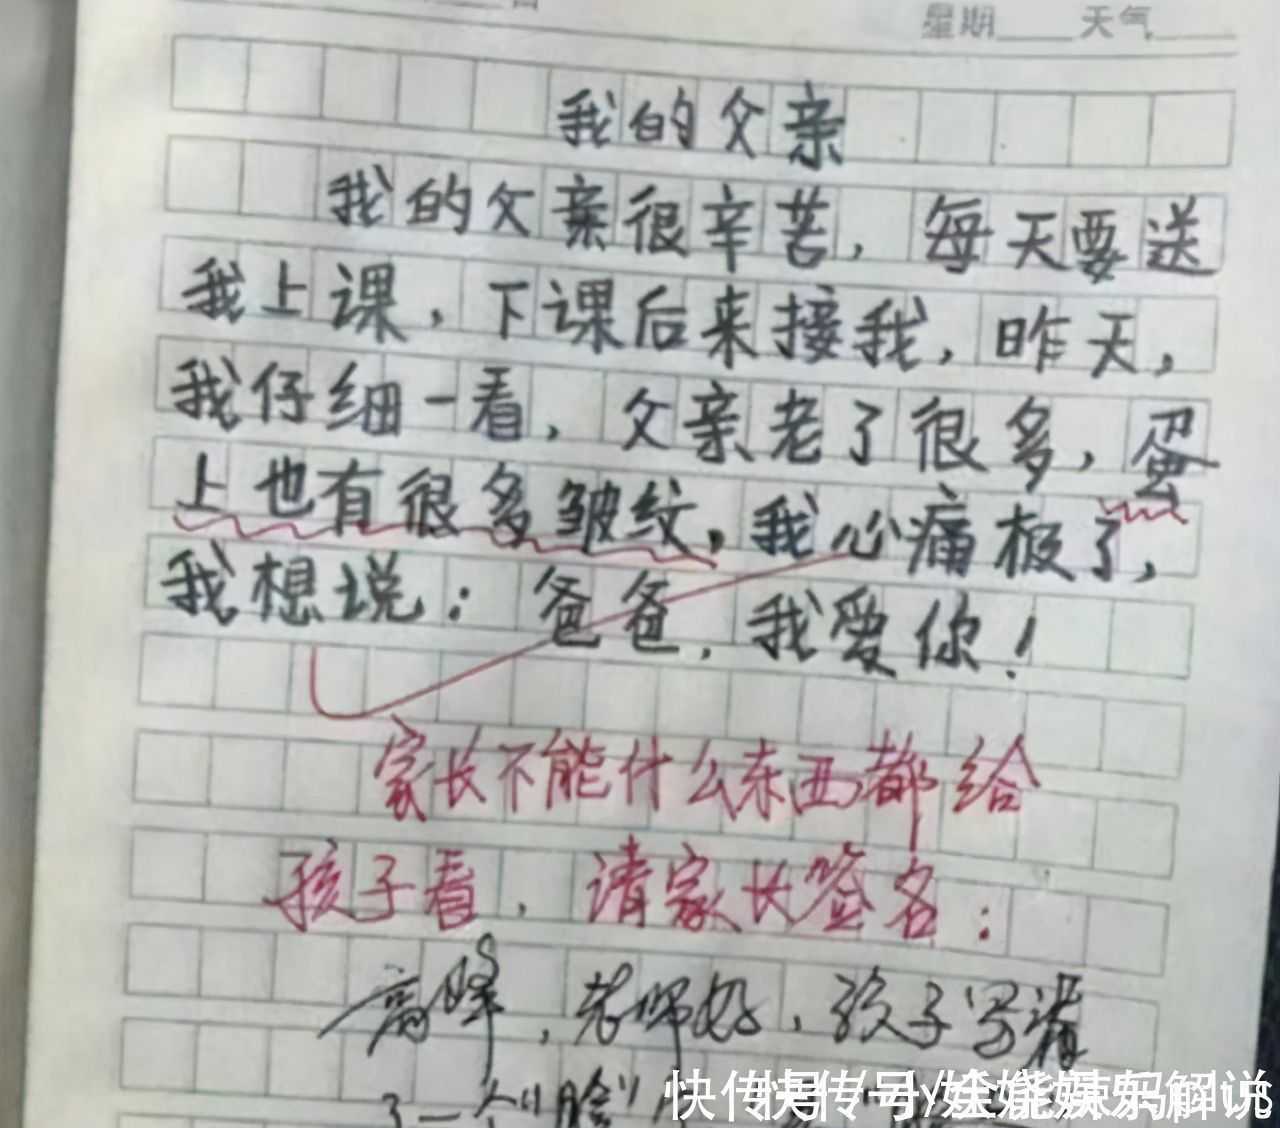 星期 天气
我的父亲
我的父亲很辛苦，每天要送
我上课，下课后来接我，昨天，
我仔细一看，父亲老了很多，蛋
上也有很多皱纹，我心痛极了，
我想说：爸爸，我爱你！
家长不能什么东西都给
孩子看，请家长签名：
高峰，老师好，孩子写错
了一个"脸"
快传号/